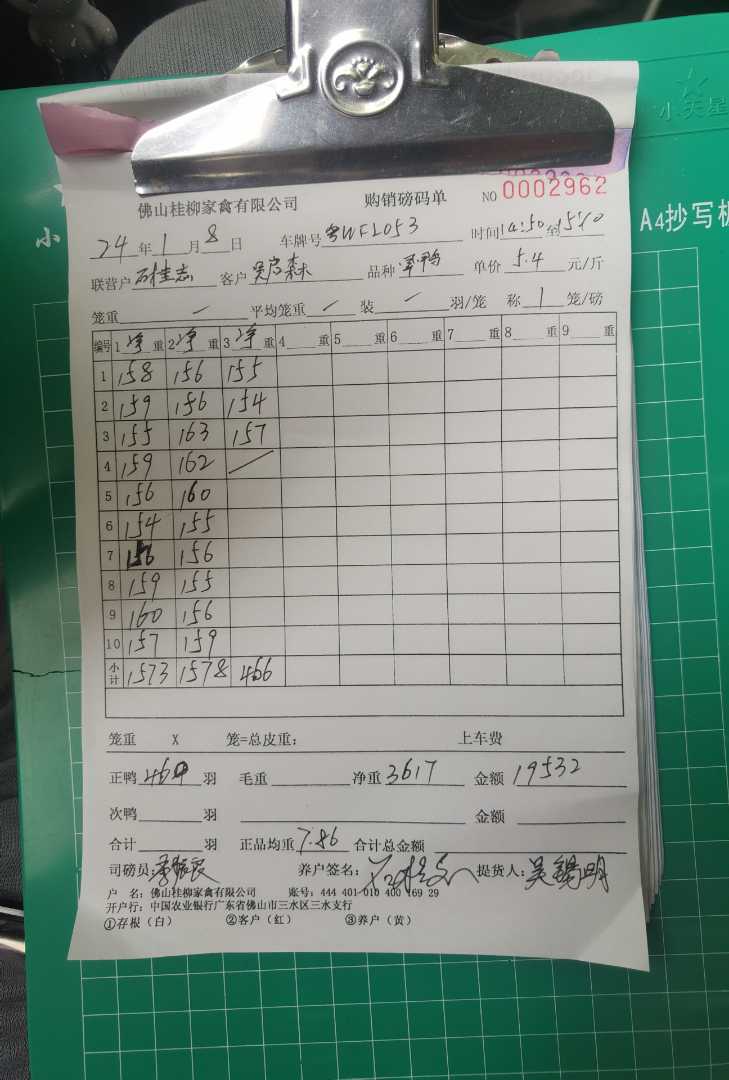 小天星
A4抄写板
小
佛山桂柳家禽有限公司 购销磅码单 NO 0002962
24年1月8日 车牌号 粤WF2053 时间14:50至15:10
联营户 客户 吴启森 品种 草鸭 单价 5.4 元/斤
笼重 / 平均笼重 / 装 / 羽/笼 称 1 笼/磅
编号 1 净 重 2 净 重 3 净 重 4 重 5 重 6 重 7 重 8 重 9 重
1 158 156 155
2 159 156 154
3 155 163 157
4 159 162 /
5 156 160
6 154 155
7 156 156
8 159 155
9 160 156
10 157 159
小计 1573 1578 466
笼重 X 笼=总皮重: 上车费
正鸭 460 羽 毛重 净重 3617 金额 19532
次鸭 羽 金额
合计 羽 正品均重 7.86 合计总金额
司磅员: 养户签名: 提货人: 吴锡明
户 名: 佛山桂柳家禽有限公司 账号: 444 401 010 400 169 29
开户行: 中国农业银行广东省佛山市三水区三水支行
①存根（白） ②客户（红） ③养户（黄）